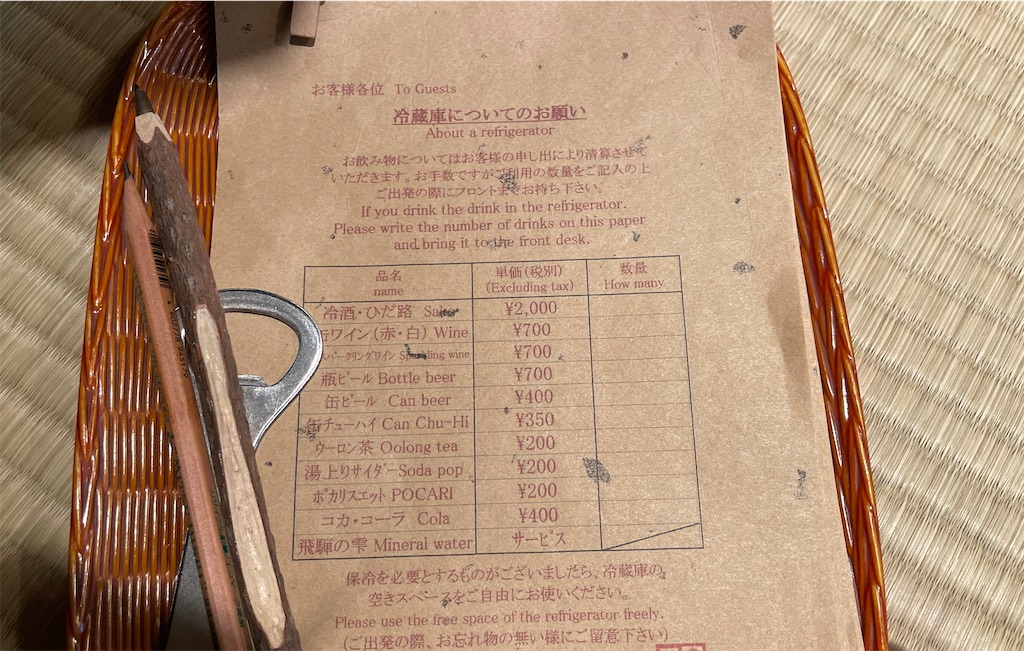 お客様各位 To Guests
冷蔵庫についてのお願い
About a refrigerator
お飲み物についてはお客様の申し出により清算させて
いただきます。お手数ですがご利用の数量をご記入の上
ご出発の際にフロントまでお持ち下さい。
If you drink the drink in the refrigerator.
Please write the number of drinks on this paper
and bring it to the front desk.
品名 単価(税別) 数量
name (Excluding tax) How many
冷酒・ひだ路 Sake ¥2,000
缶ワイン(赤・白) Wine ¥700
スパークリングワイン Sparkling wine ¥700
瓶ビール Bottle beer ¥700
缶ビール Can beer ¥400
缶チューハイ Can Chu-Hi ¥350
ウーロン茶 Oolong tea ¥200
湯上りサイダー Soda pop ¥200
ポカリスエット POCARI ¥200
コカ・コーラ Cola ¥400
飛騨の雫 Mineral water サービス
保冷を必要とするものがございましたら、冷蔵庫の
空きスペースをご自由にお使いください。
Please use the free space of the refrigerator freely.
(ご出発の際、お忘れ物の無い様にご留意下さい)